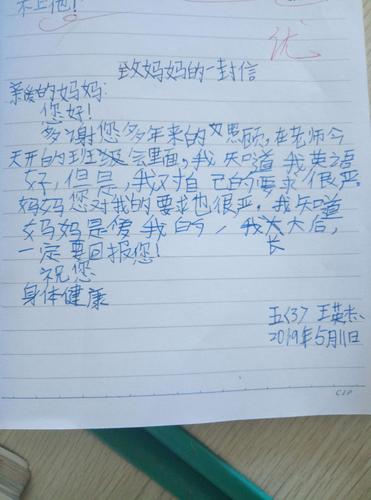 不上他！
优
致妈妈的一封信
亲爱的妈妈：
您好！
多谢您多年来的照顾，在老师今
天开的班级会里面，我知道我英语
好，但是，我对自己的要求很严
妈妈您对我的要求也很严。我知道
妈妈是爱我的，我长大后，
一定要回报您！
祝您
身体健康
五(3) 王英杰
2019年5月11日
CIP